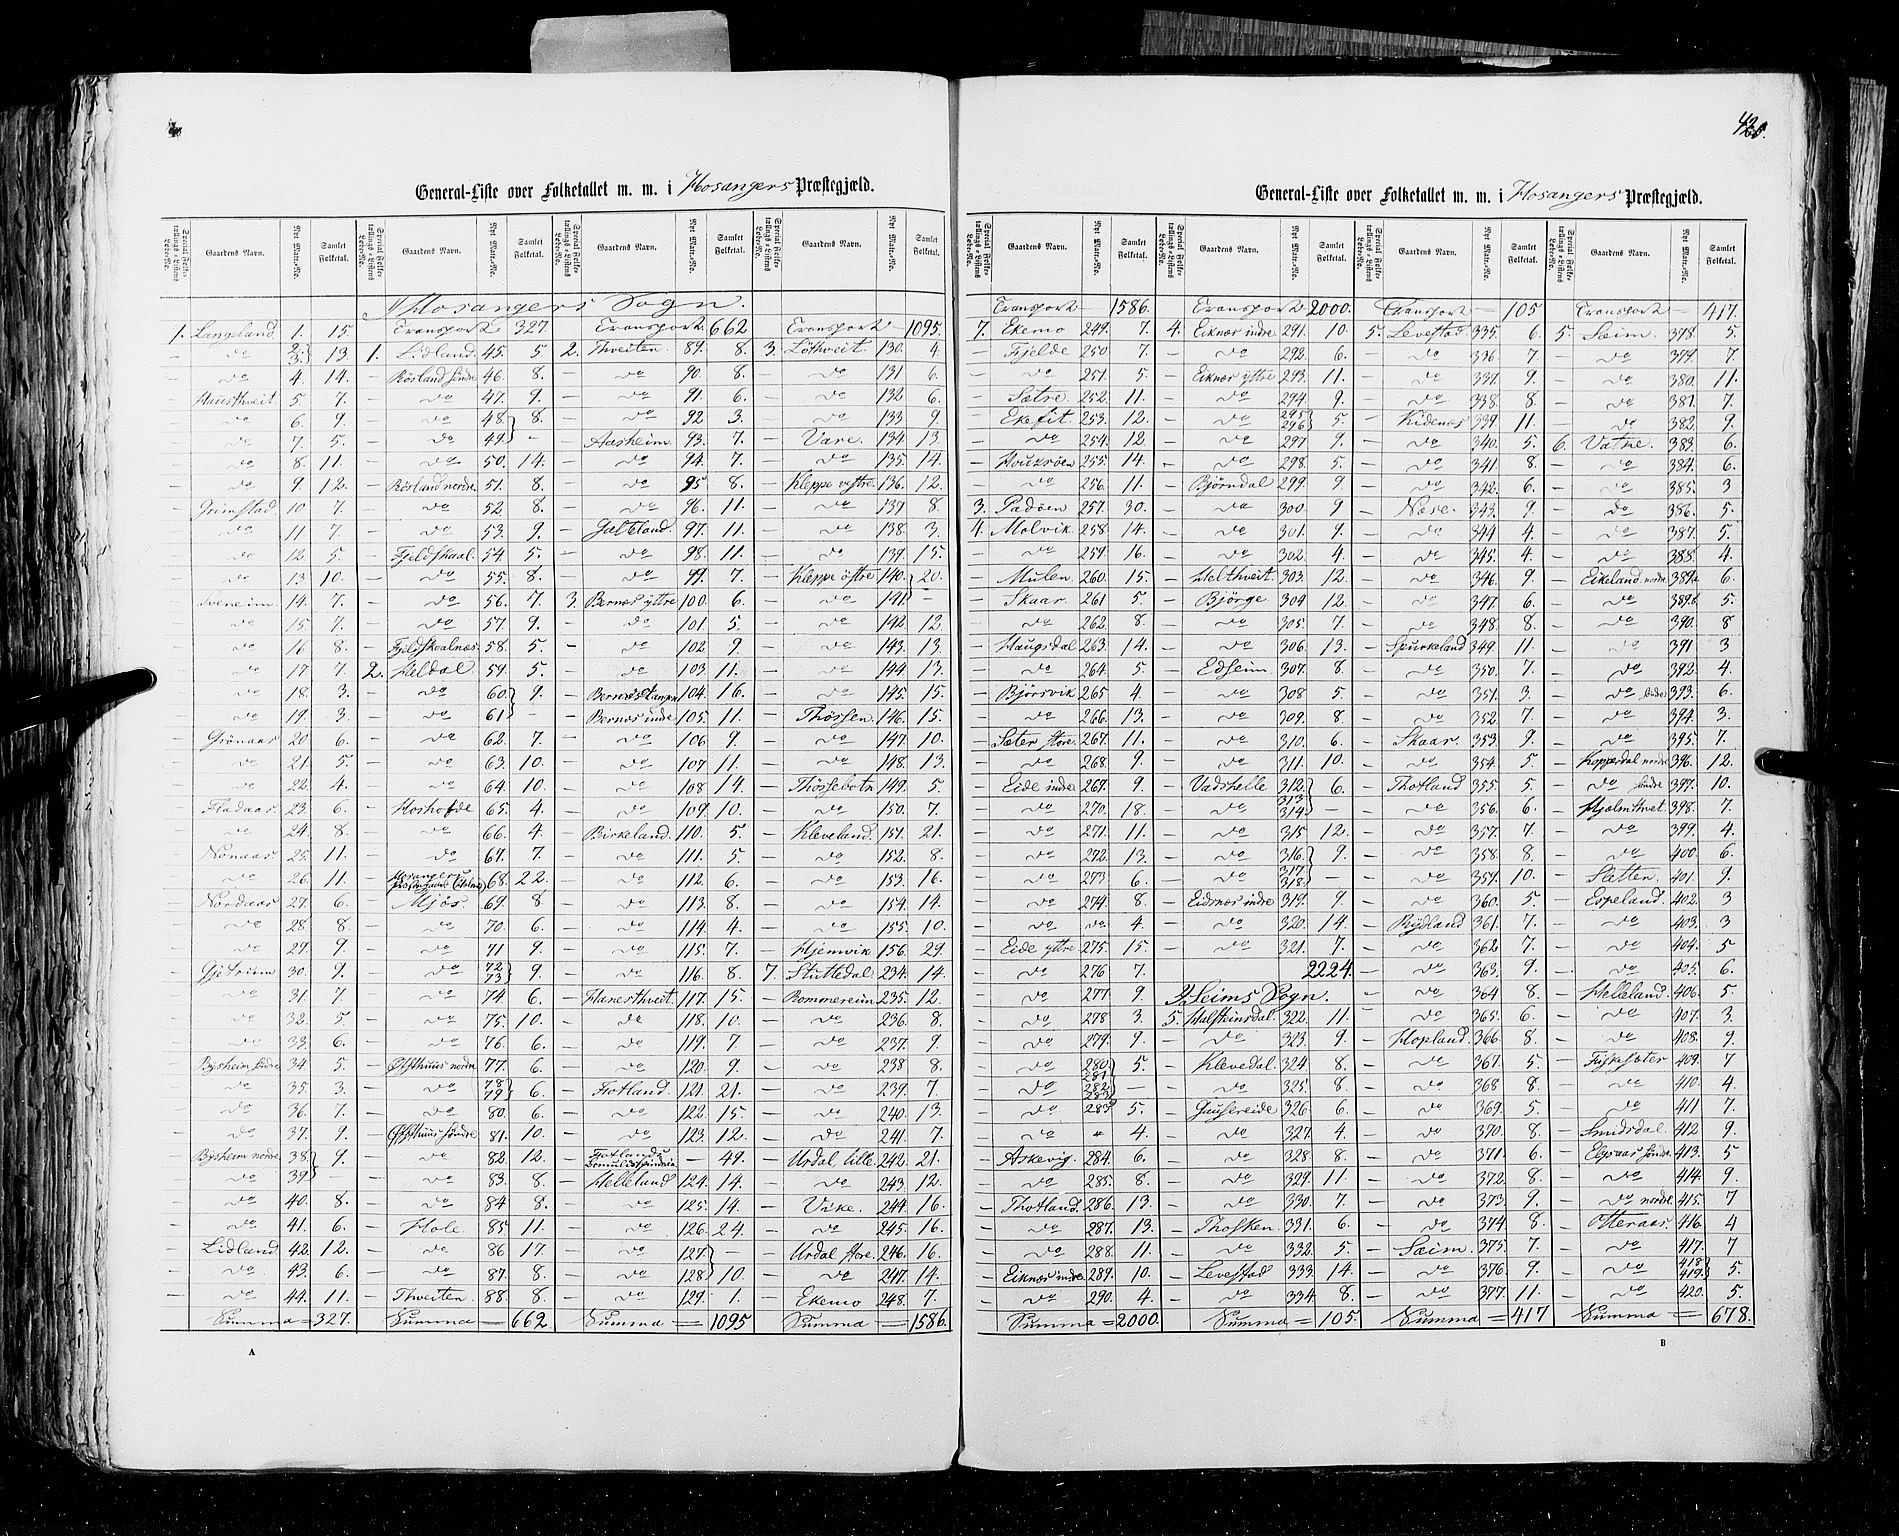 General-Liste over Folketallet m. m. i Hosangers Præstegjæld.
Special Folketællings-Listens Løbe-No. Gaardens Navn. Nyt Matr.-No. Samlet Folketal.
Hosangers Sogn.
1. Langeland 1. 15.
— do 2/3 13.
— do 4. 14.
— Hausthveit. 5 7.
— do 6. 9.
— do 7. 5.
— do 8. 11.
— do 9 12.
— Grimstad 10 7.
— do 11 7.
— do 12 5.
— do 13 10.
— Sveneim. 14. 7.
— do 15 7.
— do 16 8.
— do 17 7.
— do 18. 3.
— do 19. 3.
— Grönaas 20. 6.
— do 21. 5.
— do 22. 4.
— Fladaas 23. 6.
— do 24. 8.
— Nonaas 25. 11.
— do 26. 11.
— Nordaas 27. 6.
— do 28. 8.
— do 29. 9.
— Gjetrum 30. 9.
— do 31. 7.
— do 32. 5.
— do 33. 6.
— Bysheim söndre 34 5.
— do 35. 3.
— do 36. 7.
— do 37. 9.
— Bysheim nordre 38. 9.
— do 39 —
— do 40. 8.
— do 41. 6.
— Lidland 42. 12.
— do 43. 6.
— do 44. 11.
Summa = 327.
Transport 327.
1. Lidland. 45. 5
— Rösland söndre 46. 8.
— do 47. 9.
— do 48. 8.
— do 49. —
— do 50. 14.
— Rösland nordre 51. 8.
— do 52. 8.
— do 53. 9.
— Fjeldskaal 54. 5.
— do 55. 8.
— do 56. 7.
— do 57. 9.
— Fjeldskaalnæs 58. 5.
2. Heldal. 59. 5.
— do 60. 9.
— do 61 —
— do 62. 7.
— do 63. 10.
— do 64. 10.
— Hoshofde 65. 4.
— do 66. 4.
— do 67. 7.
— Hosangers 68. 22.
— Mjös. 69. 8
— do 70 6.
— do 71 9.
— do 72 73 9.
— do 74 6.
— do 75. 10.
— do 76 6.
— Østhuus nordre 77. 6.
— do 78 79 6.
— do 80. 6.
— Østhuus söndre 81. 10.
— do 82. 12.
— do 83. 8.
— do 84 8.
— Hole. 85. 11.
— do 86 17.
— do 87. 8.
— Thveiten 88. 8
Summa — 662
Transport 662
2. Thveiten. 89. 8.
— do 90. 8.
— do 91. 6.
— do 92 3.
— Aasheim. 93. 7.
— do 94. 7.
— do 95 8.
— do 96. 11.
— Jalteland. 97. 11.
— do 98. 11.
— do 99. 7.
3. Bernæs yttre 100. 6.
— do 101 5.
— do 102 9.
— do 103. 11.
— Bernæstangen 104. 16.
— Bernæs indre 105. 11.
— do 106 9.
— do 107 11.
— do 108 14.
— do 109. 10.
— Birkeland. 110. 5
— do 111. 5.
— do 112. 6.
— do 113. 8.
— do 114. 4.
— do 115. 7.
— do 116. 8.
— Hanesthveit. 117. 15.
— do 118. 10.
— do 119. 7
— do 120. 9.
— Fotland. 121. 21.
— do 122. 15.
— do 123. 12.
— Fotlands — 49.
— Helleland 124. 14.
— do 125. 14.
— do 126. 24.
— do 127. —
— do 128 10.
— do 129. 1.
Summa = 1095
Transport — 1095.
3. Löthveit. 130. 4.
— do 131 6.
— do 132 6.
— do 133. 9
— Vare. 134. 13.
— do 135. 14.
— Kleppe vestre. 136. 12.
— do 137 8.
— do 138. 3.
— do 139. 15.
— Kleppe östre 140. 20.
— do 141. —
— do 142 12.
— do 143. 13.
— do 144. 13.
— do 145. 15.
— Thössen. 146. 15.
— do 147. 10.
— do 148. 13.
— Thössebotn 149. 5.
— do 150. 7.
— Kleveland. 151. 21.
— do 152. 8.
— do 153. 16.
— do 154. 14.
— do 155 10.
— Hjemvik 156. 29.
7. Stuttedal. 234. 14.
— Rommereim 235. 12.
— do 236. 8.
— do 237. 9.
— do 238 8.
— do 239. 7
— do 240. 13.
— do 241. 7.
— Urdal lille. 242. 21.
— do 243. 12.
— Vike. 244. 16.
— do 245. 16.
— Urdal store. 246. 16.
— do 247. 14.
— Ekemo 248. 7.
Summa = 1586.
A
General-Liste over Folketallet m. m. i Hosangers Præstegjæld.
Special Folketællings-Listens Løbe-No. Gaardens Navn. Nyt Matr.-No. Samlet Folketal.
Transport — 1586.
7. Ekemo 249. 7.
— Fjelde 250. 7.
— do 251. 5.
— Sætre. 252. 11.
— Ekefit. 253. 12.
— do 254. 12.
— Houkröen 255. 14.
— do 256. 11.
3. Padöen 257. 30.
4. Molvik 258. 14.
— do 259. 16.
— Mulen. 260. 15.
— Skaar. 261 5.
— do 262. 8.
— Haugsdal 263. 14.
— do 264. 5.
— Björsvik 265 4.
— do 266. 13.
— Sæter store. 267. 11.
— do 268. 9.
— Eide indre 269. 9.
— do 270. 18.
— do 271. 11.
— do 272. 13.
— do 273 6.
— do 274. 8.
— do do 4.
— Eide yttre 275. 15.
— do 276 7.
— do 277. 9.
— do 278 3.
— do 279. 9.
— do 280. 281 5.
— do 282. 283 —
— do 283 5.
— do " 4.
— Askevig. 284. 6.
— do 285. 8.
— Thotland. 286. 13.
— do 287. 13.
— do 288. 11.
— Eiknæs indre 289. 10.
— do 290. 4.
Summa = 2000.
Transport 2000.
4. Eiknæs indre 291. 10.
— do 292. 6.
— Eiknæs yttre 293. 11.
— do 294. 9.
— do 295 296 5.
— do 297 9.
— do 298. 5.
— Björndal 299. 9.
— do 300 9
— do 301. 9.
— do 302. 4.
— Helthveit. 303. 12.
— Björge 304 12.
— do 305. 7.
— do 306. 13.
— Edseim. 307. 8
— do 308 5.
— do 309. 8.
— do 310. 6.
— do 311. 10.
— Vadshelle 312. 6.
— do 313 314 —
— do 315 12.
— do 316. 9.
— do 317. 318. —
— Eidsnes indre 319. 9.
— do 320. 14.
— do 321. 7.
2224.
2, Seims Sogn.
5. Halstensdal. 322. 11.
— do 323. 9.
— Klevedal. 324 8.
— do 325. 8.
— Gausereide 326. 6.
— do 327. 4.
— do 328. 8.
— do 329. 11.
— do 330. 7.
— Thosken. 331. 6.
— do 332. 5.
— Levestad 333. 14.
— do 334 8.
Summa = 105.
Transport — 105
5. Levestad. 335. 6.
— do 336. 7.
— do 337. 9.
— do 338. 8.
— Kidenæs 339. 11.
— do 340. 5
— do 341. 8.
— do 342. 6.
— Næse. 343. 9.
— do 344 4.
— do 345. 4.
— do 346. 9.
— do 347. 6.
— do 348. 8.
— Spurkeland 349. 11.
— do 350. 7.
— do 351. 3.
— do 352. 7.
— Skaar. 353. 9.
— do 354. 5
— Thotland 355. 5
— do 356. 6.
— do 357. 7.
— do 358. 8.
— do 359. 10.
— do 360. 5
— Rydland 361. 7.
— do 362. 7.
— do 363. 9
— do 364 8.
— do 365. 6.
— Hopland. 366 8.
— do 367. 5
— do 368 8.
— do 369. 5.
— do 370. 8.
— do 371. 6.
— do 372. 8.
— do 373. 9.
— do 374 8.
— Sæim. 375. 7.
— do 376. 9.
— do 377. 11.
Summa = 417
Transport — 417.
5. Sæim. 378. 5.
— do 379. 7.
— do 380. 11.
— do 381. 7.
— do 382. 9.
6. Vatne. 383. 6.
— do 384. 6.
— do 385. 3
— do 386. 5.
— do 387. 5.
— do 388 4.
— Eikeland nordre 389a 6.
— do 389b 5.
— do 390. 8
— do 391 3
— do 392. 4.
— do söndre 393. 6.
— do 394. 3.
— do 395. 7.
— Kopperdal nordre 396. 12.
— do söndre 397. 10.
— Hjelmthvet 398. 7.
— do 399. 4.
— do 400. 6
— Sletten. 401. 9.
— Espeland. 402. 3
— do 403. 3
— do 404. 5
— do 405. 6.
— Helleland. 406. 5
— do 407. 3.
— do 408. 9
— Fiskesæter 409. 7
— do 410. 4
— do 411 7.
— Smidsdal. 412 9.
— Elgsaas söndre 413. 5
— do 414. 9.
— do nordre 415. 7
— Otteraas 416. 4
— do 417. 7
— do 418 419. 5.
— do 420. 5.
Summa = 678.
B